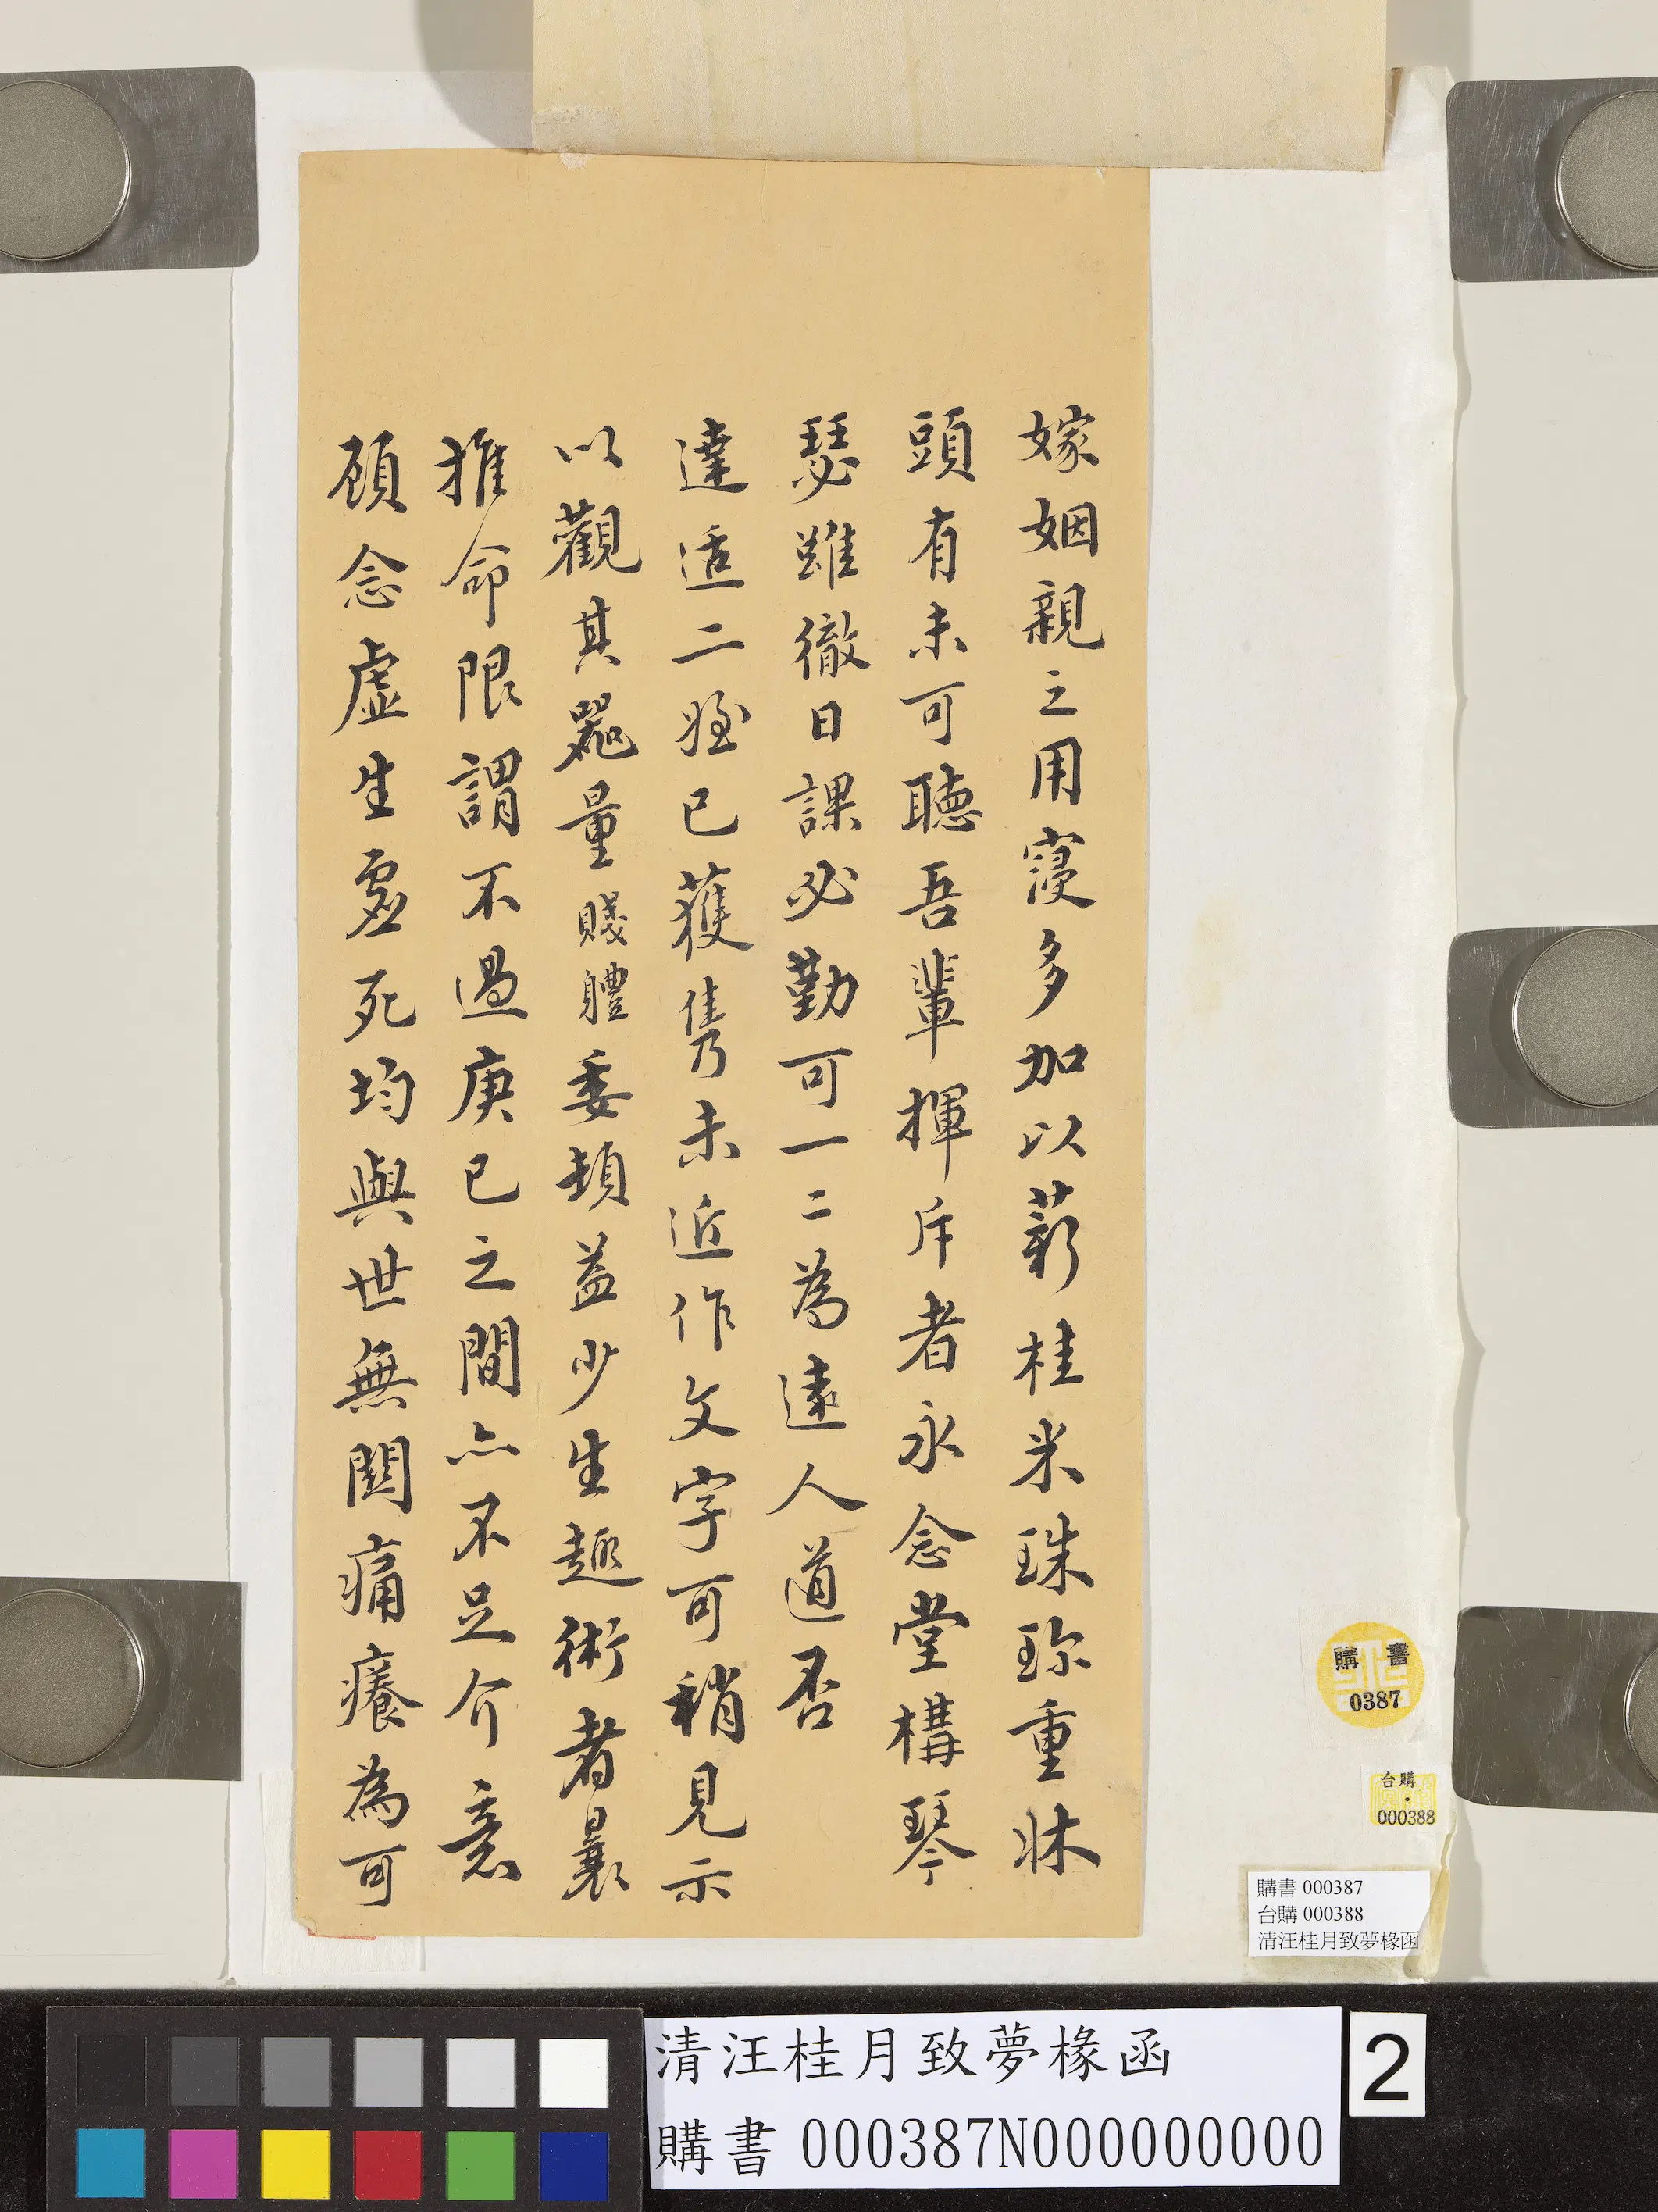 嫁姻親之用寖多加以薪桂米珠珎重牀
頭有未可聽吾輩揮斥者永念堂構琴
瑟雖徹日課必勤可一二為遠人道否
達适二姪已獲雋乃未近作文字可稍見示
以觀其噐量賤軆委頓益少生趣術者曩
推命限謂不過庚已之間亦不足介意
顧念虛生虛死均與世無關痛癢為可
購書
0387
台購
000388
購書 000387
台購 000388
清汪桂月致夢椽函
清汪桂月致夢椽函
購書 000387N000000000
2